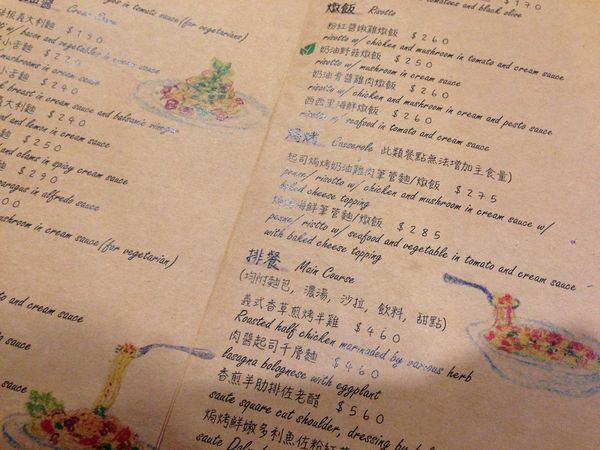 Cream Sauce
in tomato sauce (for vegetarians)
$220
mushrooms in cream sauce
$240
breast in cream sauce and balsamic vinegar
$240
and lemon in cream sauce
$250
and clams in spicy cream sauce
$290
asparagus in alfredo sauce
mushroom in cream sauce (for vegetarian)
and cream sauce
sauce
sauce
$170
tomatoes and black olive
燉飯 Risotto
粉紅醬嫩雞燉飯 $260
risotto w/ chicken and mushroom in tomato and cream sauce
奶油野菇燉飯 $250
risotto w/ mushroom in cream sauce
奶油青醬雞肉燉飯 $260
risotto w/ chicken and mushroom in cream and pesto sauce
西西里海鮮燉飯 $260
risotto w/ seafood in tomato and cream sauce
焗烤 Casserole 此類餐點無法增加主食量)
起司焗烤奶油雞肉筆管麵/燉飯 $275
penne/risotto w/ chicken and mushroom in cream sauce w/
baked cheese topping
焗烤海鮮筆管麵/燉飯 $285
penne/riostto w/ seafood and vegetable in tomato and cream sauce
with baked cheese topping
排餐 Main Course
(均附麵包, 濃湯, 沙拉, 飲料, 甜點)
義式香草煎烤半雞 $460
Roasted half chicken marinaded by various herb
肉醬起司千層麵 $460
lasugna bolognese with eggplant
香煎羊肋排佐老醋 $560
saute square cut shoulder, dressing by
焗烤鮮嫩多利魚佐粉紅
saute